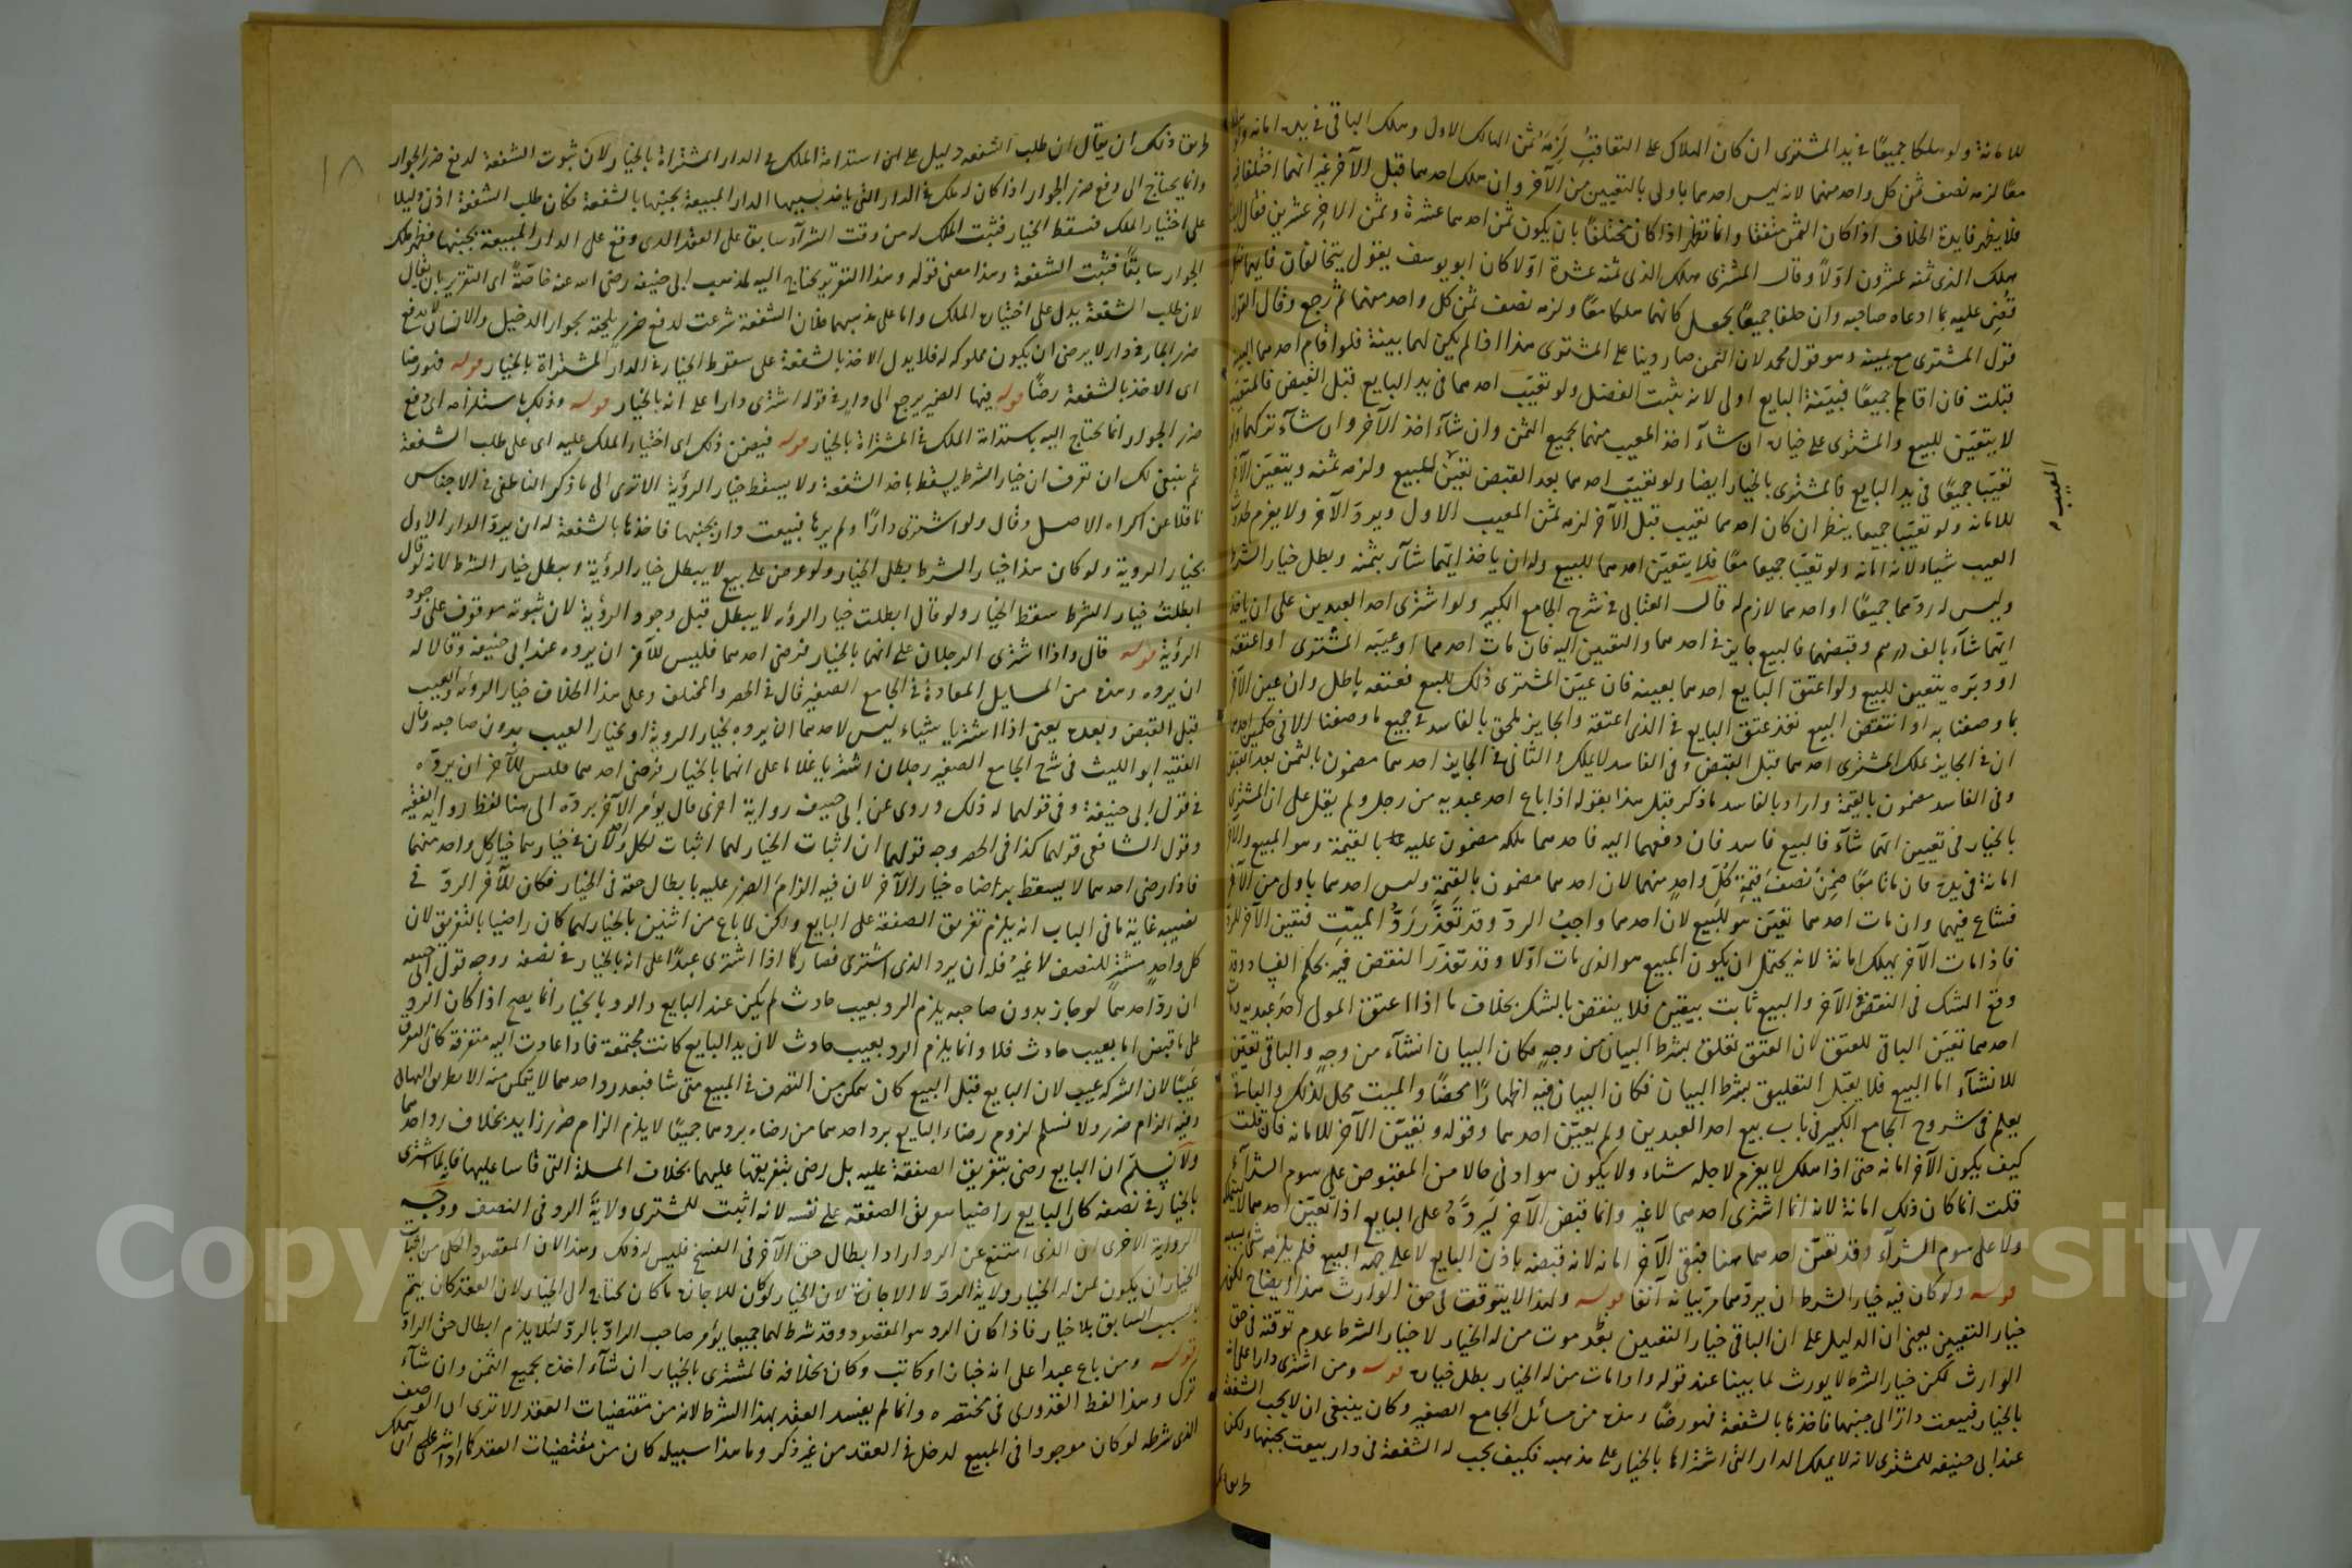 للامانة ولو هلكا جميعًا في يد المشترى ان كان الهلاك على التعاقب لزمه ثمن الهالك الاول وهلك الباقي في يده امانة
معًا لزمه نصف ثمن كل واحد منهما لانه ليس احدهما باولى بالتعيين من الآخر وان هلك احدهما قبل الآخر غير انهما اختلفا
فلا يظهر فايدة الخلاف اذا كان الثمن متفقا وانما تظهر اذا كان مختلفًا بان يكون ثمن احدهما عشرة وثمن الاخر عشرين فقال
هلك الذى ثمنه عشرون اوّلًا وقال المشترى هلك الذى ثمنه عشرة اوّلا كان ابو يوسف يقول يتحالفان فايهما
قضى عليه بما ادعاه صاحبه وان حلفا جميعًا يجعل كانهما هلكا معًا ولزمه نصف ثمن كل واحد منهما ثم رجع وقال القول
قول المشترى مع يمينه وهو قول محمد لان الثمن صار دينا على المشترى هذا اذا لم يكن لهما بينة فلو اقام احدهما البينة
قبلت فان اقاما جميعًا فبيّنة البايع اولى لانه يثبت الفضل ولو تعيّب احدهما في يد البايع قبل القبض فالمتعيب
لا يتعيّن للبيع والمشترى على خياره ان شآء اخذ المعيب منهما بجميع الثمن وان شآء اخذ الآخر وان شآء تركهما
تعيّبا جميعًا في يد البايع فالمشترى بالخيار ايضا ولو تعيّب احدهما بعد القبض تعيّن للمبيع ولزمه ثمنه ويتعيّن الآخر
العيب
للامانة ولو تعيّبا جميعا ينظر ان كان احدهما تعيب قبل الآخر لزمه ثمن المعيب الاول ويردّ الآخر ولا يغرم
العيب شياء لانه امانة ولو تعيّبا جميعا معًا فلا يتعيّن احدهما للبيع وله ان ياخذ ايّهما شآء بثمنه وبطل خيار الشرط
وليس له ردّهما جميعًا او احدهما لازم له قال العتابى في شرح الجامع الكبير ولو اشترى احد العبدين على ان ياخذ
ايّهما شآء بالف درهم وقبضهما فالبيع جايز في احدهما والتعيين اليه فان مات احدهما او عيّبه المشترى او اعتقه
او دبّره يتعين للبيع ولو اعتق البايع احدهما بعينه فان عيّن المشترى ذلك للبيع فعتقه باطل وان عين الآخر
بما وصفنا به او انتقض البيع نفذ عتق البايع في الذى اعتقه والجايز ملحق بالفاسد في جميع ما وصفنا الا في حكمين احدهما
ان في الجايز يملك المشترى احدهما قبل القبض وفى الفاسد لا يملك والثانى في الجايز احدهما مضمون بالثمن بعد القبض
وفى الفاسد مضمون بالقيمة واراد بالفاسد ما ذكر قبل هذا بقوله اذا باع احد عبديه من رجل ولم يقل على ان المشترى
بالخيار في تعيين ايّهما شآء فالبيع فاسد فان دفعهما اليه فاحدهما ملكه مضمون عليه بالقيمة وهو المبيع والآخر
امانة في يده فان ماتا معًا ضمن نصف قيمة كلّ واحد منهما لان احدهما مضمون بالقيمة وليس احدهما باولى من الآخر
فشاع فيهما وان مات احدهما تعيّن هو للبيع لان احدهما واجب الردّ وقد تعذّر ردّ الميّت فتعين الآخر للردّ
فاذا مات الآخر يهلك امانة لانه يحتمل ان يكون المبيع هو الذى مات اوّلا وقد تعذّر النقض فيه بحكم الفساد وقد
وقع الشك في النقض في الآخر والبيع ثابت بيقين فلا ينتقض بالشك بخلاف ما اذا اعتق المولى احد عبديه
احدهما تعيّن الباقى للعتق لان العتق تعلق بشرط البيان من وجهٍ فكان البيان انشآء من وجهٍ والباقى تعيّن
للانشآء اما البيع فلا يقبل التعليق بشرط البيان فكان البيان فيه اظهارًا محضًا والميت محل لذلك والباقى
يعلم في شروح الجامع الكبير في باب بيع احد العبدين ولم يعيّن احدهما وقوله وتعيّن الآخر للامانة فان قلت
كيف يكون الآخر امانة حتى اذا هلك لا يغرم لاجله شياء ولا يكون هو ادنى حالا من المقبوض على سوم الشرآء
قلت انما كان ذلك امانة لانه انما اشترى احدهما لا غير وانما قبض الآخر ليردّه على البايع اذا تعيّن احدهما
ولا على سوم الشرآء وقد تعيّن احدهما ههنا فبقى الآخر امانة لانه قبضه باذن البايع لا على جهة البيع فلم يلزمه
قوله ولو كان فيه خيار الشرط ان يردّهما مرّ بيانه آنفا قوله ولهذا لا يتوقت في حق الوارث هذا ايضاح لكن
خيار التعيين يعنى ان الدليل على ان الباقى خيار التعيين بعد موت من له الخيار لا خيار الشرط عدم توقته في حق
الوارث لكن خيار الشرط لا يورث لما بينا عند قوله واذا مات من له الخيار بطل خياره قوله ومن اشترى دارا على انه
بالخيار فبيعت دارٌ الى جنبها فاخذها بالشفعة فهو رضًا وهذه من مسائل الجامع الصغير وكان ينبغى ان لا يجب الشفعة
عند ابى حنيفة للمشترى لانه لا يملك الدار التى اشتراها بالخيار على مذهبه فكيف يجب له الشفعة في دار بيعت بجنبها ولكن
طريق
١٨
طريق ذلك ان يقال ان طلب الشفعة دليل على استدامة الملك في الدار المشتراة بالخيار لان ثبوت الشفعة لدفع ضرر الجوار
وانما يحتاج الى دفع ضرر الجوار اذا كان له ملك في الدار التى ياخذ بسببها الدار المبيعة بجنبها بالشفعة فكان طلب الشفعة اذن دليلا
على اختيار الملك فسقط الخيار فثبت الملك له من وقت الشرآء سابقا على العقد الذى وقع على الدار المبيعة بجنبها
الجوار سابقًا فثبت الشفعة وهذا معنى قوله وهذا التقرير يحتاج اليه لمذهب ابى حنيفة رضى الله عنه خاصّة اى التقرير بان يقال
لان طلب الشفعة يدل على اختياره الملك واما على مذهبهما فلان الشفعة شرعت لدفع ضرر يلحقه بجوار الدخيل والانسان لا يدفع
ضرر الجار في دار لا يرضى ان يكون مملوكه له فلا يدل الاخذ بالشفعة على سقوط الخيار في الدار المشتراة بالخيار قوله فهو رضا
اى الاخذ بالشفعة رضًا قوله فيها الضمير يرجع الى دار في قوله اشترى دارا على انه بالخيار قوله وذلك باستدامه اى دفع
ضرر الجوار انما يحتاج اليه باستدامة الملك في المشتراة بالخيار قوله فيضمن ذلك اى اختيار الملك عليه اى على طلب الشفعة
ثم ينبغى لك ان تعرف ان خيار الشرط يسقط باخذ الشفعة ولا يسقط خيار الرؤية الا ترى الى ما ذكر الناطفى في الاجناس
ناقلا عن اكراه الاصل وقال ولو اشترى دارًا ولم يرها فبيعت دار بجنبها فاخذها بالشفعة له ان يردّ الدار الاولى
بخيار الروية ولو كان هذا خيار الشرط بطل الخيار ولو عرض على بيع لا يبطل خيار الرؤية ويبطل خيار الشرط لانه لو قال
ابطلت خيار الشرط سقط الخيار ولو قال ابطلت خيار الرؤية لا يبطل قبل وجود الرؤية لان ثبوته موقوف على وجود
الرؤية قوله قال واذا اشترى الرجلان على انهما بالخيار فرضى احدهما فليس للآخر ان يرده عند ابى حنيفة وقالا له
ان يرده وهذه من المسايل المعادة في الجامع الصغير قال في الحصر والمختلف وعلى هذا الخلاف خيار الرؤية والعيب
قبل القبض وبعده يعنى اذا اشتريا شياء ليس لاحدهما ان يرده بخيار الروية او بخيار العيب بدون صاحبه وقال
الفقيه ابو الليث في شرح الجامع الصغير رجلان اشتريا غلاما على انهما بالخيار فرضى احدهما فليس للآخر ان يردّه
في قول ابى حنيفة وفي قولهما له ذلك وروى عن ابى حنيفة رواية اخرى قال يؤمر الآخر بردّه الى هنا لفظ رواية الفقيه
وقول الشافعى قولهما كذا في الحصر وجه قولهما ان اثبات الخيار لهما اثبات لكل واحد منهما
فاذا رضى احدهما لا يسقط برضاه خيار الآخر لان فيه الزام الضرر عليه بابطال حقه في الخيار فكان للآخر الردّ في
نصيبه غاية ما في الباب انه يلزم تفريق الصفقة على البايع ولكن لما باع من اثنين بالخيار لهما كان راضيا بالتفريق لان
كل واحدٍ مشترٍ للنصف لا غير فله ان يرد الذى اشترى فصار كما اذا اشترى عبدًا على انه بالخيار في نصفه ووجه قول ابى حنيفة
ان ردّ احدهما لو جاز بدون صاحبه يلزم الرد بعيب حادث لم يكن عند البايع والرد بالخيار انما يصح اذا كان الرد
على ما قبض اما بعيب حادث فلا وانما يلزم الرد بعيب حادث لان يد البايع كانت مجتمعة فاذا عادت اليه متفرقة كان التفرق
عيبًا لان الشركة عيب لان البايع قبل البيع كان يتمكن من التصرف في المبيع متى شا فبعد رد احدهما لا يتمكن منه الا بطريق المهاياة
وفيه الزام ضرر ولا نسلم لزوم رضاء البايع برد احدهما من رضاه بردهما جميعًا لا يلزم الزام ضرر زايد بخلاف رد احدهما
ولا نسلّم ان البايع رضى بتفريق الصفقة عليه بل رضى بتفريقها عليهما بخلاف المسلة التى قاسا عليها
بالخيار في نصفه كان البايع راضيا بتفريق الصفقة على نفسه لانه اثبت للمشترى ولاية الرد في النصف ووجه
الرواية الاخرى ان الذى امتنع عن الرد اراد ابطال حق الآخر في الفسخ فليس له ذلك وهذا لان المقصود الكلى من اثبات
الخيار ان يكون لمن له الخيار ولاية الردّ لا الاجازة لان الخيار لو كان للاجازة ما كان يحتاج الى الخيار لان العقد كان يتم
بالسبب السابق بلا خيار فاذا كان الرد هو المقصود وقد شرط لهما جميعا يؤمر صاحب الرادّ بالردّ لئلا يلزم ابطال حق الرادّ
قوله ومن باع عبدا على انه خباز او كاتب وكان بخلافه فالمشترى بالخيار ان شآء اخذه بجميع الثمن وان شآء
ترك وهذا لفظ القدورى في مختصره وانما لم يفسد العقد بهذا الشرط لانه من مقتضيات العقد الا ترى ان الوصف
الذى شرطه لو كان موجودا في المبيع لدخل في العقد من غير ذكر وما هذا سبيله كان من مقتضيات العقد
Copy University